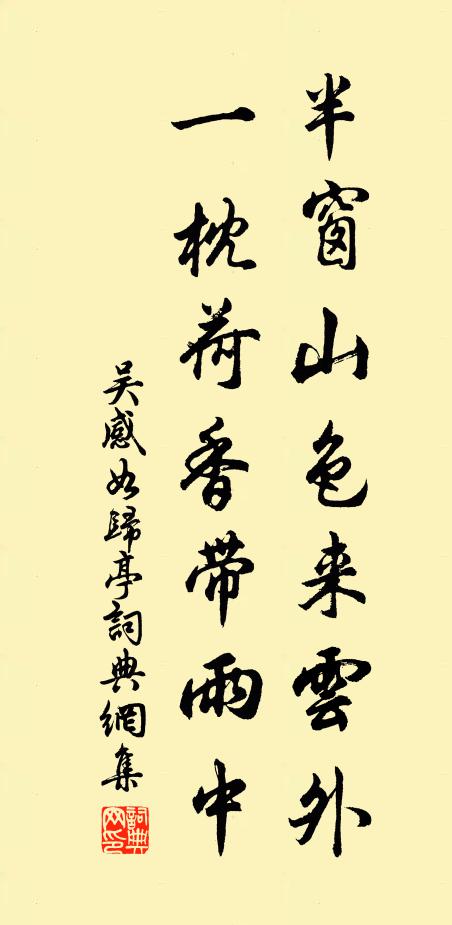 半窗山色来雲外
一枕荷香帶雨中
吴感如歸亭詞典網集
詞典網印